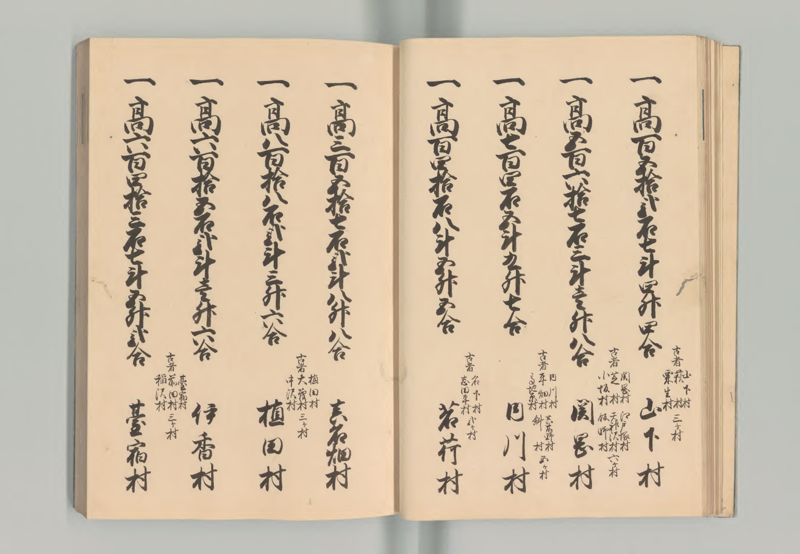 一 高百五拾弐石七斗四升四合 古者 山下村 萩村 栗生村 三ヶ村 山下村
一 高五百六拾七石三斗壱升八合 古者 関岡村 小坂村 六ヶ村 関岡村
一 高七百四石五斗九升七合 古者 川村 五ヶ村 川村
一 高百四拾石八斗五升五合 古者 弐ヶ村 茗荷村
一 高三百五拾七石弐斗八升八合 畑村
一 高八百拾八石弐斗三升六合 古者 植田村 中沢村 三ヶ村 植田村
一 高六百拾五石弐斗壱升六合 伊香村
一 高六百四拾三石七斗五升弐合 古者 前田村 稲沢村 三ヶ村 臺宿村